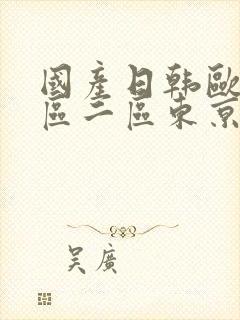 國產日韓歐
區二區東京
吴廣